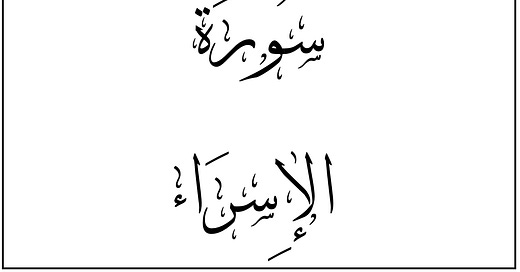 سُورَةُ
الإِسْرَاءِ